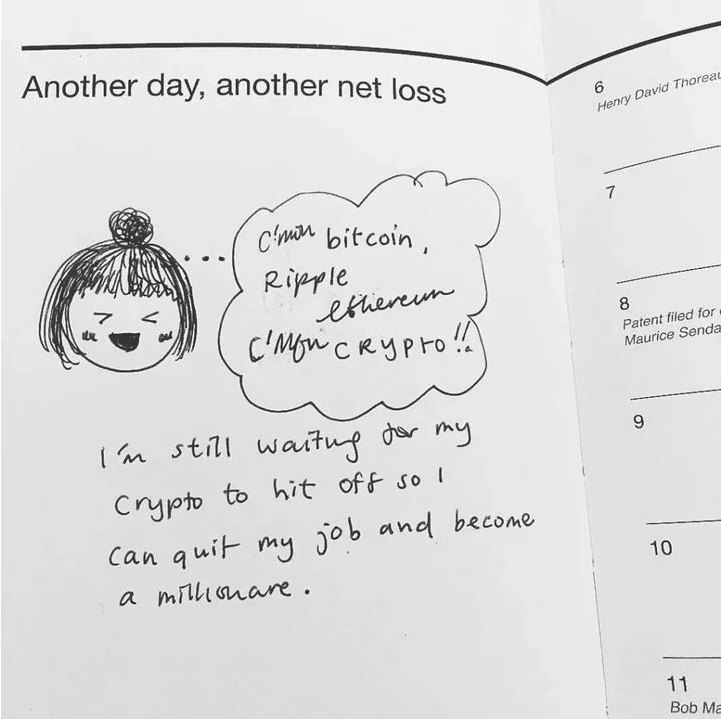 Another day, another net loss
C'mon bitcoin,
Ripple
ethereum
C'Mon CRYPTO!!
I'm still waiting for my
crypto to hit off so I
can quit my job and become
a millionare.
6
Henry David Thoreau
7
8
Patent filed for
Maurice Senda
9
10
11
Bob Ma